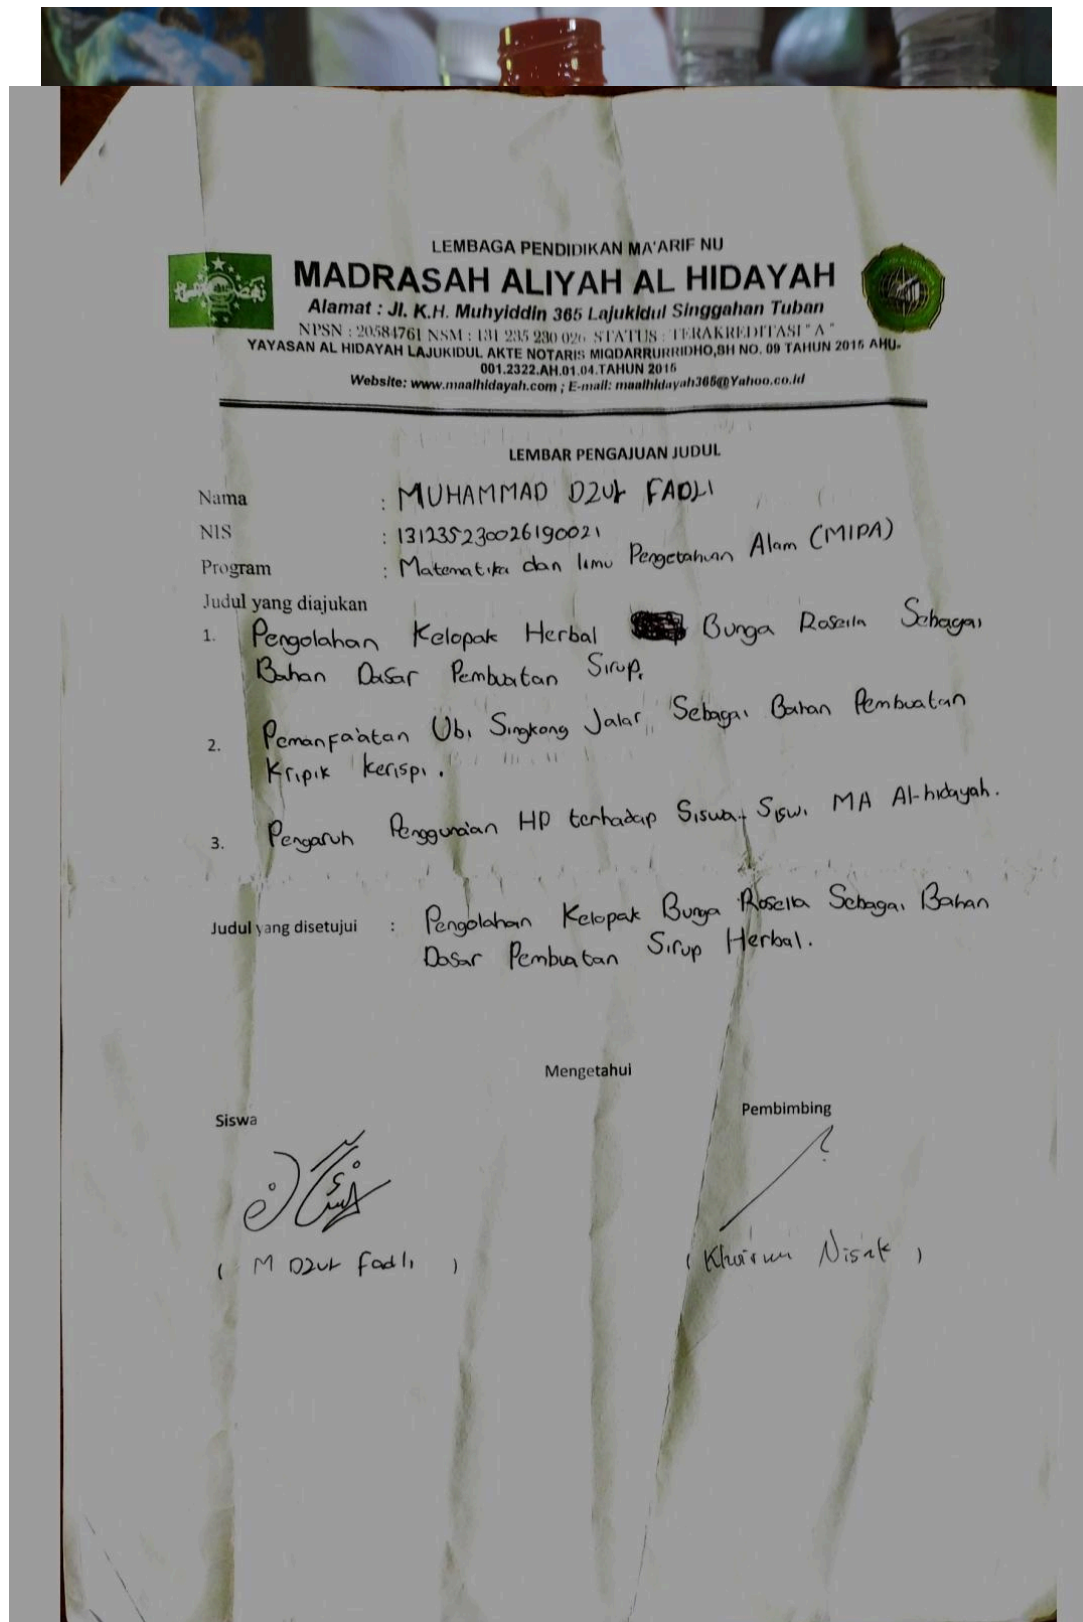 LEMBAGA PENDIDIKAN MA'ARIF NU
MADRASAH ALIYAH AL HIDAYAH
Alamat : Jl. K.H. Muhyiddin 365 Lajukidul Singgahan Tuban
NPSN : 20584761 NSM : 131 235 230 026 STATUS : TERAKREDITASI " A "
YAYASAN AL HIDAYAH LAJUKIDUL AKTE NOTARIS MIQDARRURRIDHO,SH NO. 09 TAHUN 2015 AHU-
001.2322.AH.01.04.TAHUN 2015
Website: www.maalhidayah.com ; E-mail: maalhidayah365@Yahoo.co.id
LEMBAR PENGAJUAN JUDUL
Nama : MUHAMMAD DZUL FADLI
NIS : 131235230026190021
Program : Matematika dan Ilmu Pengetahuan Alam (MIPA)
Judul yang diajukan
1. Pengolahan Kelopak Herbal Bunga Rosella Sebagai
Bahan Dasar Pembuatan Sirup.
2. Pemanfa'atan Ubi Singkong Jalar Sebagai Bahan Pembuatan
Kripik Kerispi.
3. Pengaruh Penggunaan HP terhadap Siswa-Siswi MA Al-hidayah.
Judul yang disetujui : Pengolahan Kelopak Bunga Rosella Sebagai Bahan
Dasar Pembuatan Sirup Herbal.
Mengetahui
Siswa Pembimbing
( M Dzul Fadli ) ( Khoirun Nisak )